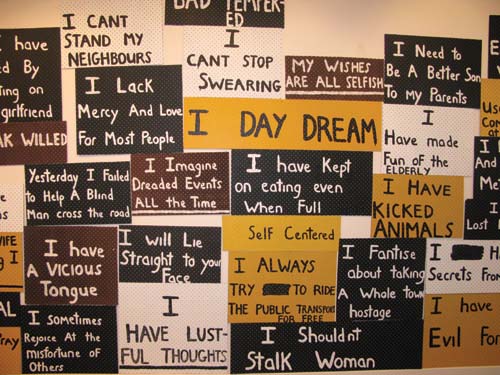 BAD TEMPER-
ED
I CANT
STAND MY
NEIGHBOURS
I
CANT STOP
SWEARING
MY WISHES
ARE ALL SELFISH
I Need to
Be A Better Son
To My Parents
I have
ed By
ting on
girlfriend
I Lack
Mercy And Love
For Most People
I DAY DREAM
I
Have made
Fun of the
ELDERLY
AK WILLED
Yesterday I Failed
to Help A Blind
Man cross the road
I Imagine
Dreaded Events
ALL the Time
I have Kept
on eating even
When Full
I HAVE
KICKED
ANIMALS
I have
A Vicious
Tongue
I will Lie
Straight to your
Face
Self Centered
I ALWAYS
TRY TO RIDE
THE PUBLIC TRANSPORT
FOR FREE
I Fantise
about taking
A Whole town
hostage
I Ha
Secrets From
I Sometimes
Rejoice At the
misfortune of
Others
I
HAVE LUST-
FUL THOUGHTS
I Shouldnt
Stalk Woman
I have
Evil For